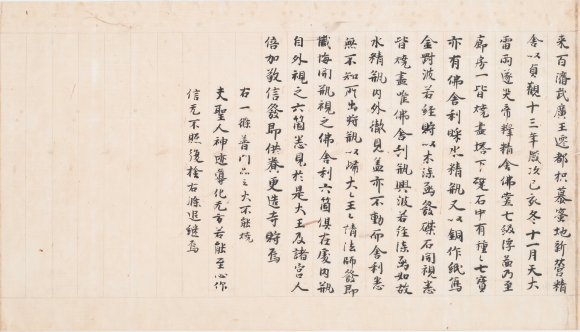 来百濟武廣王遷都枳慕蜜地新營精
舍以貞觀十三年歲次己亥冬十一月天大
雷雨遂災帝釋精舍佛堂七級浮啚乃至
廊房一皆燒盡塔下礎石中有種々七寶
亦有佛舍利睬水精瓶又以銅作紙寫
金剛波若經貯以木漆函發礎石開視悉
皆燒盡唯佛舍利瓶與波若經漆函如故
水精瓶内外徹見盖亦不動而舍利悉
無不知所出將瓶以歸大々王々請法師發即
懺悔開瓶視之佛舍利六箇俱在處内瓶
自外視之六箇悉見於是大王及諸宮人
倍加敬信發即供養更造寺貯焉
右一條普門品云火不能燒
夫聖人神迹導化无方若能至心仰
信无不照復捨右條追継焉